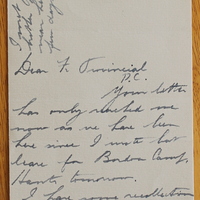 Dear Fr Provincial
P.C.
Your letter
has only reached me
now as we have been
here since I wrote but
leave for Bordon Camp,
Hants tomorrow.
I have some recollection